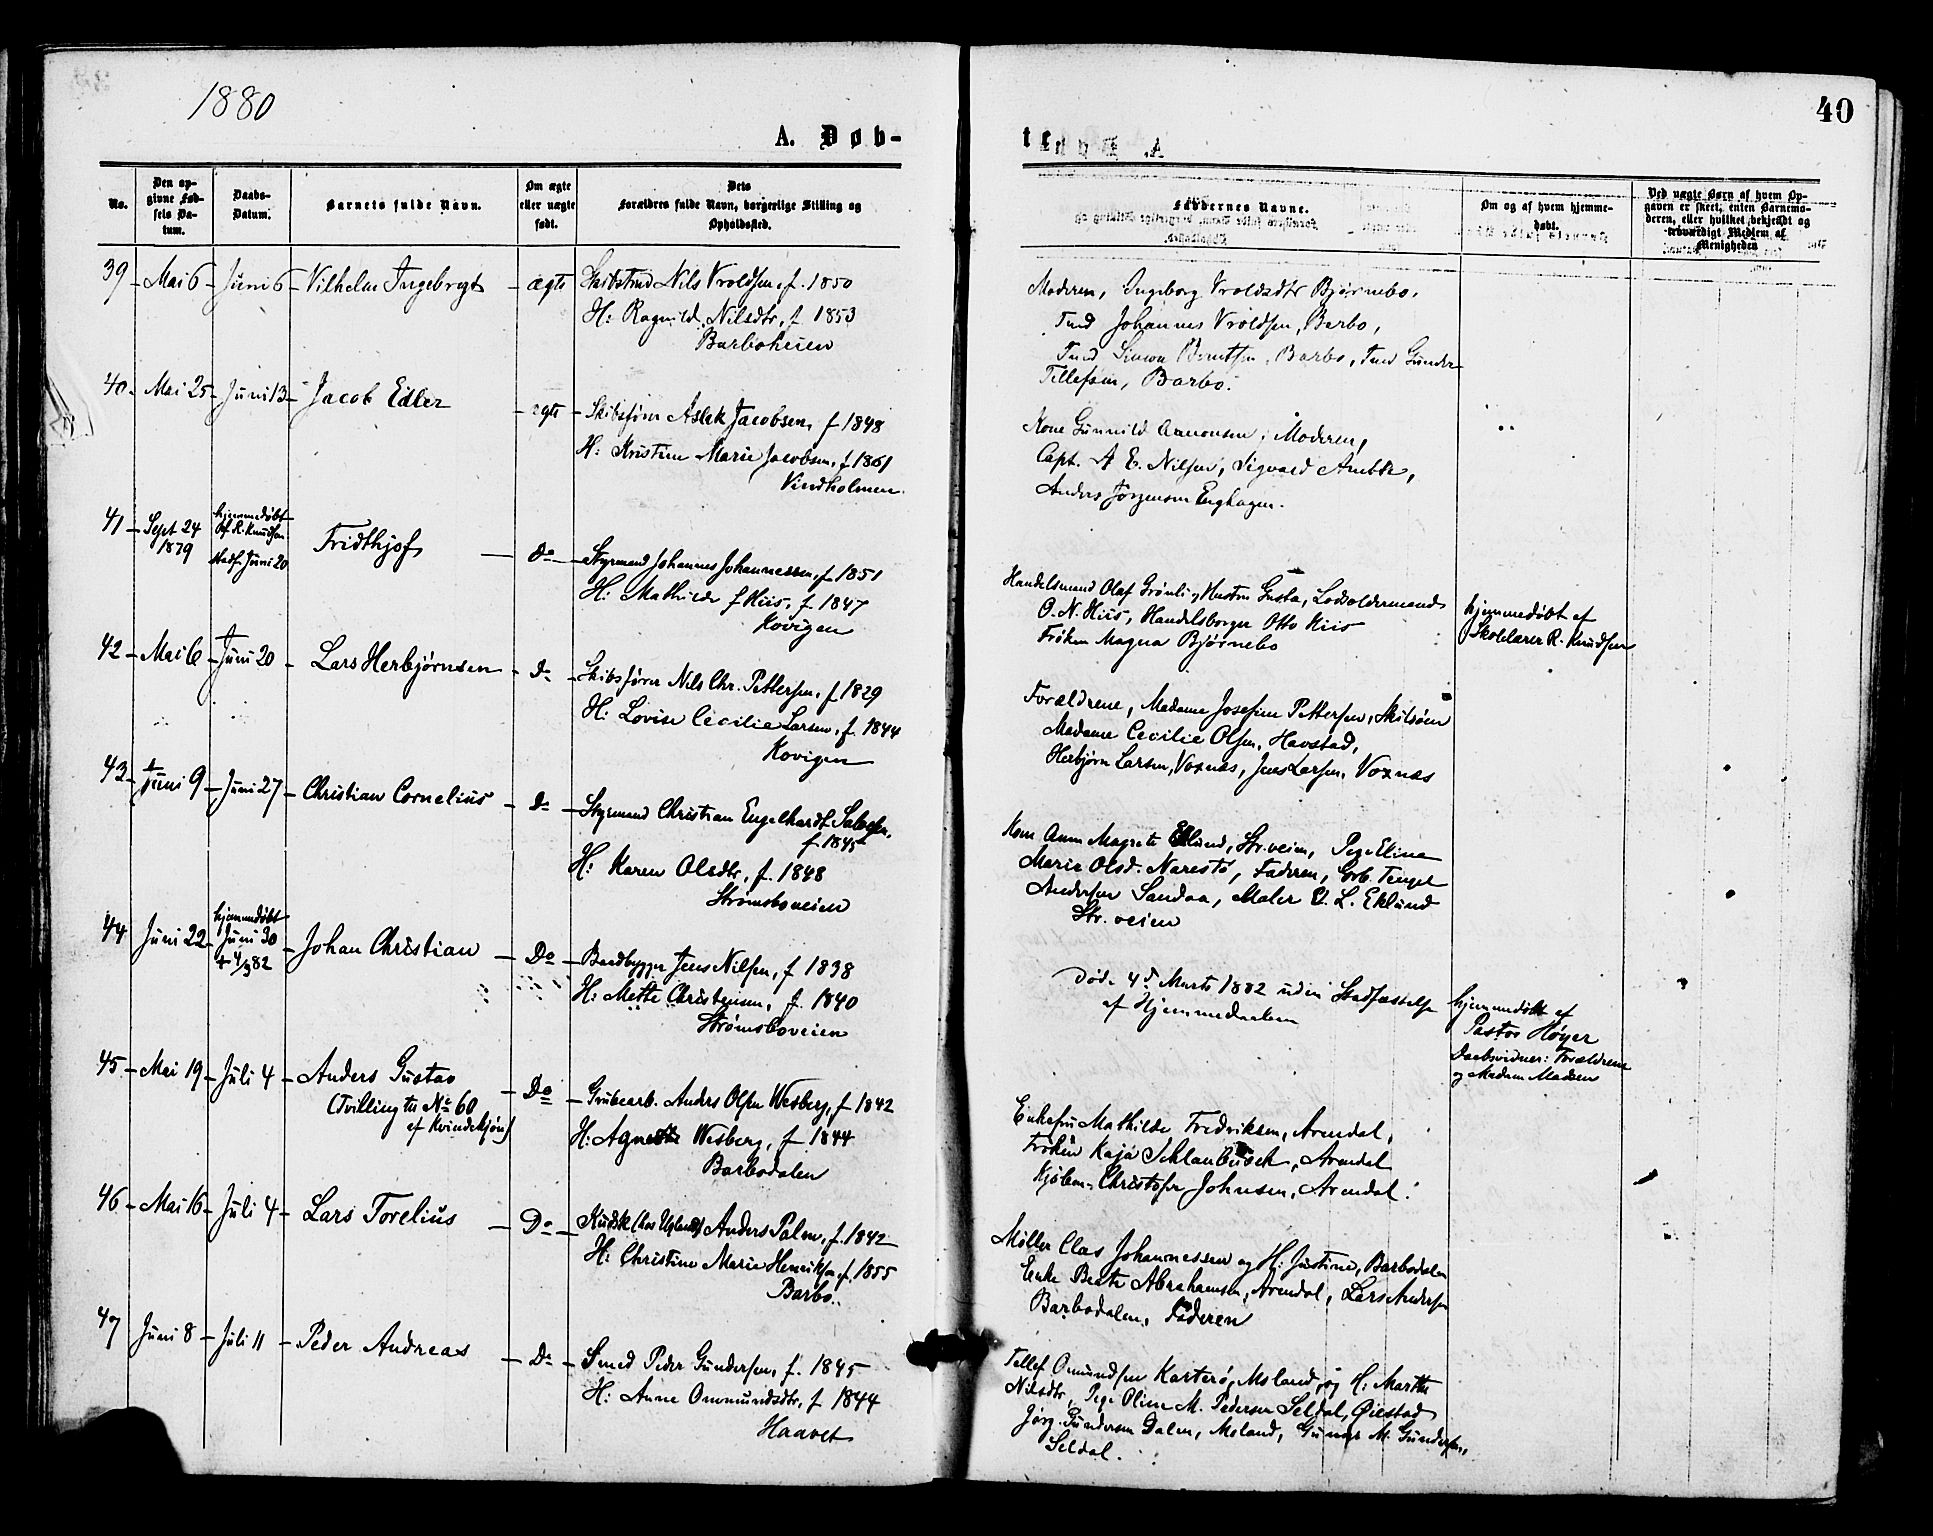 1880
40
A. Døb-
te
No.
Den op-
givne Fød-
sels Da-
tum.
Daabs-
Datum.
Barnets fulde Navn.
Om ægte
eller uægte
født.
Dets
Forældres fulde Navn, borgerlige Stilling og
Opholdssted.
Faddernes Navne.
Om og af hvem hjemme-
døbt.
Ved uægte Børn af hvem Op-
gaven er skeet, enten Barnemo-
deren, eller hvilket bekjendt og
troværdigt Medlem af
Menigheden
39 Mai 6 Juni 6 Vilhelm Ingebregt ægte Nils Vroldsen, f. 1850
H: Ragnild Nilsdtr, f 1853
Barboheien
Moderen, Ingeborg Vroldsdtr Bjørnebo,
Tmd Johannes Vroldsen, Barbo,
Tmd Simon Berntsen, Barbo, Tmd Gunder
Tellefsen, Barbo.
40 Mai 25 Juni 13 Jacob Edler ægte Skibsfører Aslak Jacobsen, f 1848
H: Kristine Marie Jacobsen, f. 1861
Vindholmen
Kone Gunnild Aamonsen, Moderen,
Capt. A E. Nilsen, Sigvald
Anders Jørgensen Enghagen.
41 Sept 24
1879
hjemmedøbt
af R. Knudsen
Stadf. Juni 20
Fridthjof Do Styrmand Johannes Johannessen, f 1851
H: Mathilde f Hiis, f. 1847
Kovigen
Handelsmand Olaf Grønli og Hustru Gusta, Lodsoldermand
O. N. Hiis, Handelsborger Otto Hiis
Frøken Magna Bjørnebo
hjemmedøbt af
Skolelærer R. Knudsen
42 Mai 6 Juni 20 Lars Herbjørnsen Do Skibsfører Nils Chr. Pettersen, f 1829
H: Lovise Cecilie Larsen, f. 1844
Kovigen
Forældrene, Madame Josefine Pettersen, Skilsøen
Madame Cecilie Olsen, Havstad,
Herbjørn Larsen, Voxnæs, Jens Larsen, Voxnæs
43 Juni 9 Juni 27 Christian Cornelius Do Styrmand Christian Engelhardt Salvesen,
f 1845
H: Karen Olsdtr, f. 1848
Strømsboveien
Kone Anne Magrete Eklund, Str.veien, Pige Eline
Marie Olsd. Narestø, Faderen, Tengel
Andersen Sandaa, Maler E. L. Eklund
Str. veien
44 Juni 22
hjemmedøbt
Juni 30
+ 4/3 82
Johan Christian Do Baadbygger Jens Nilsen, f 1838
H: Mette Christensen, f. 1840
Strømsboveien
Død 4de Marts 1882 uden Stadfæstelse
af Hjemmedaaben
hjemmedøbt af
Pastor Høyer
Daabsvidner: Forældrene
og Madam Madsen
45 Mai 19 Juli 4 Anders Gustav
(Tvilling til No 60
af Kvindekjøn)
Do Grubearb. Anders Olsen Wesberg, f 1842
H: Agnethe Wesberg, f 1844
Barbodalen
Enkefru Mathilde Fredriksen, Arendal,
Frøken Kaja Schlanbusch, Arendal
Kjøbm. Christofer Johnsen, Arendal.
46 Mai 16 Juli 4 Lars Torelius Do Kudsk (hos Ugland) Anders Palm, f. 1842
H: Christine Marie Henriksen, f. 1855
Barbo.
Møller Clas Johannessen og H: Justine, Barbodalen
Enke Beate Abrahamsen, Arendal, Lars Andersen
Barbodalen, Faderen
47 Juni 8 Juli 11 Peder Andreas Do Smed Peder Gundersen, f. 1845
H: Anne Ommundsdtr, f 1844
Haavet
Tellef Omundsen Karterø, Moland, og H: Marthe
Nilsdtr, Pige Oline M. Pedersen Seldal, Øiestad
Jørg. Gundersen Dalen, Moland, Gunar M. Gundersen,
Seldal.